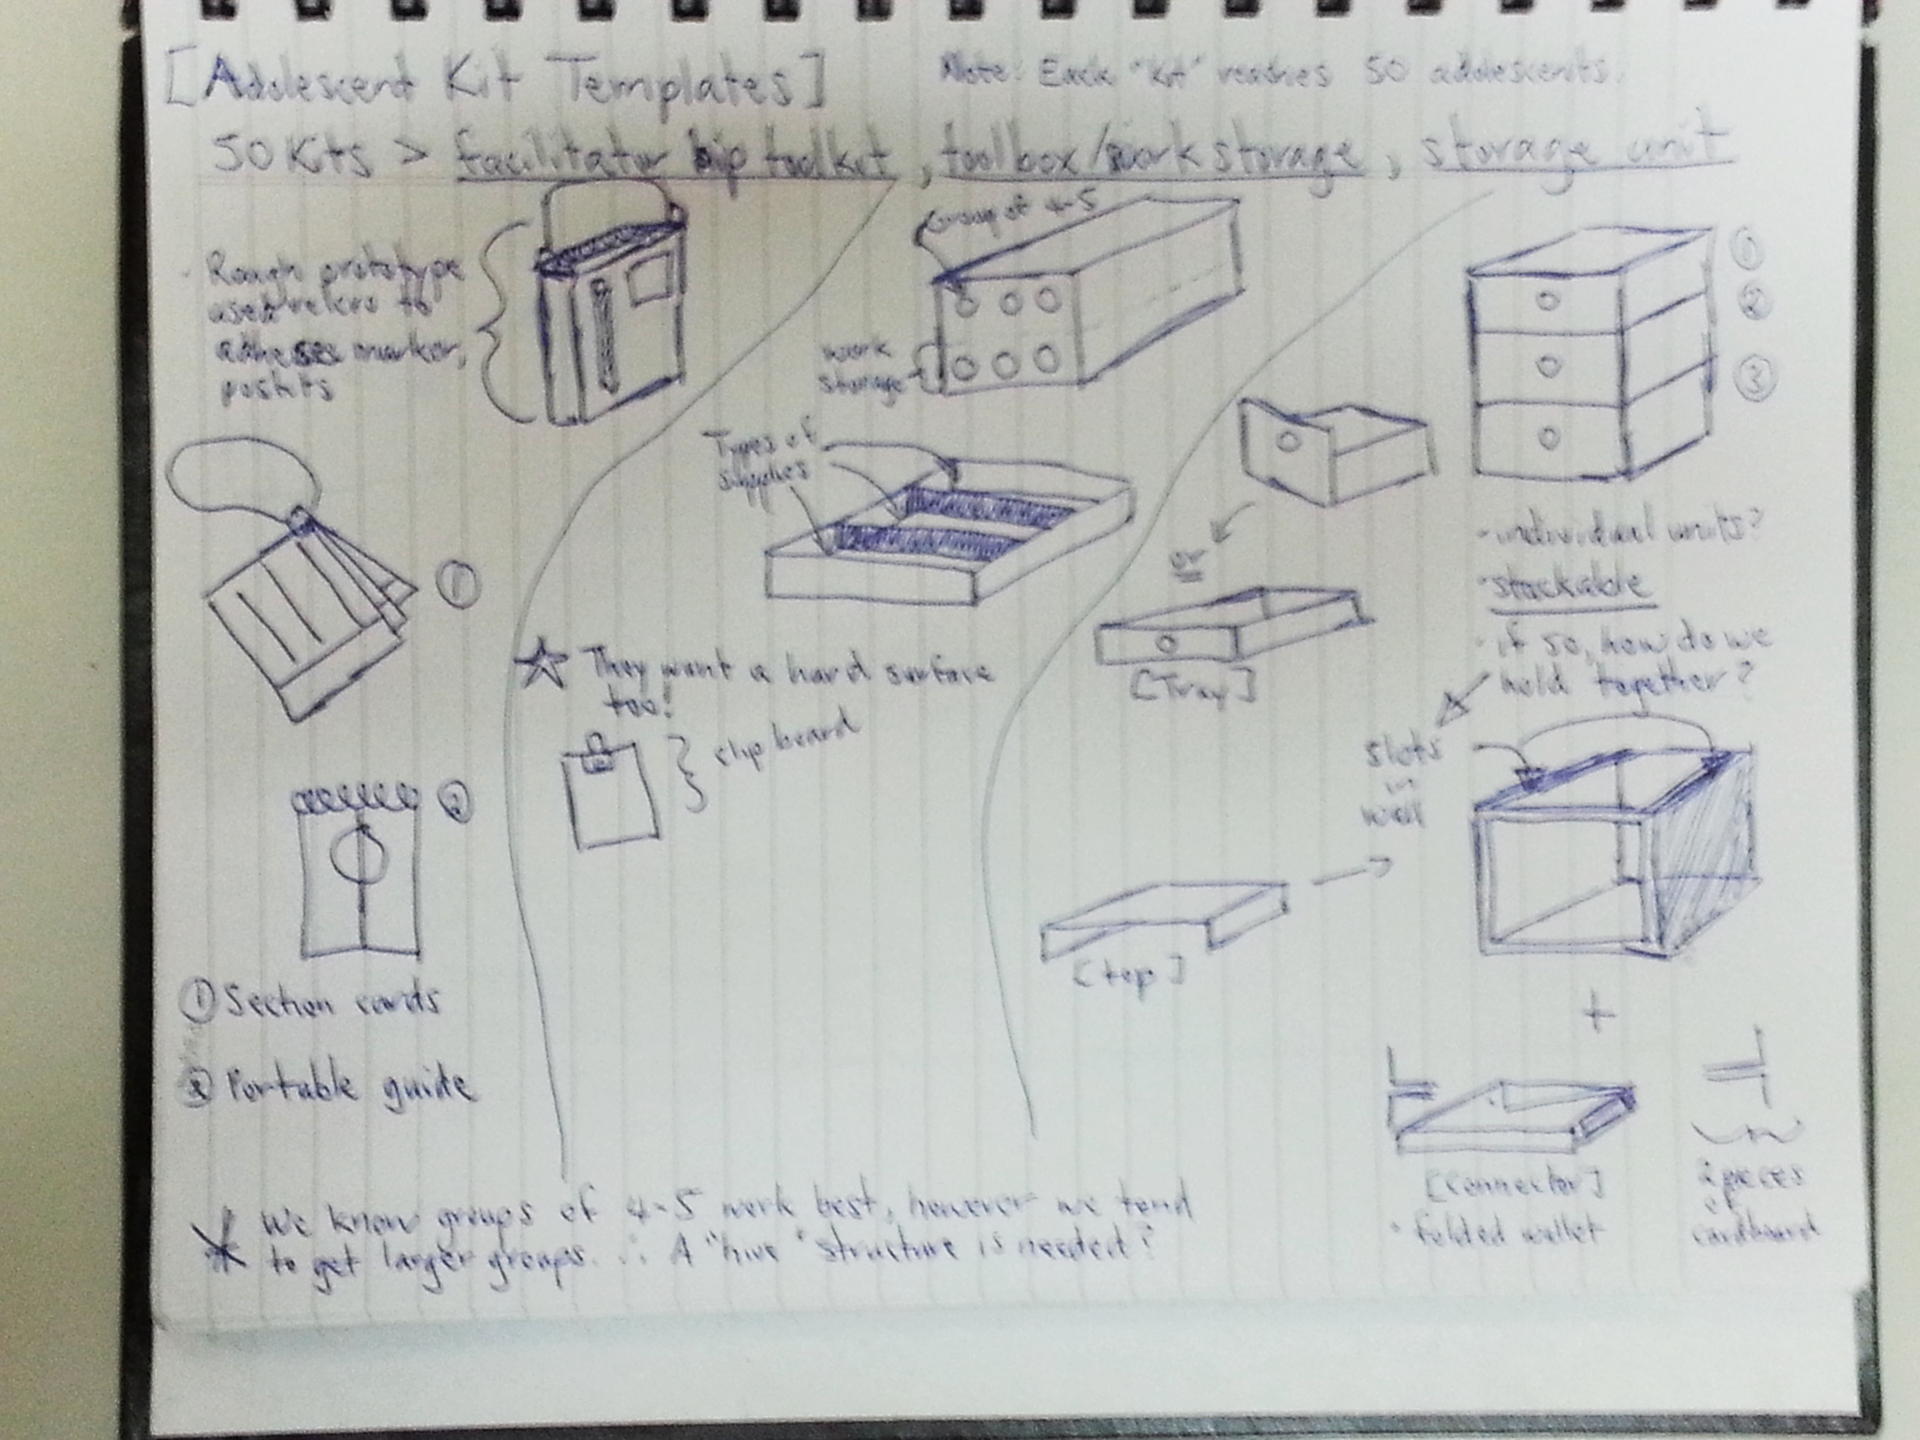 [Adolescent Kit Templates]
Note: Each "Kit" reaches 50 adolescents.
50 Kits > facilitator hip toolkit, toolbox/work storage, storage unit
· Rough prototype
used velcro to
adheses marker,
postits
①
②
① Section cards
② Portable guide
Group of 4-5
work
storage
Types of
supplies
☆ They want a hard surface
too!
clipboard
①
②
③
or
[Tray]
- individual units?
· stackable
· if so, how do we
hold together?
slots
in
wall
[top]
+
[connector]
· folded wallet
2 pieces
cardboard
* We know groups of 4-5 work best, however we tend
to get larger groups. ∴ A "hive" structure is needed?